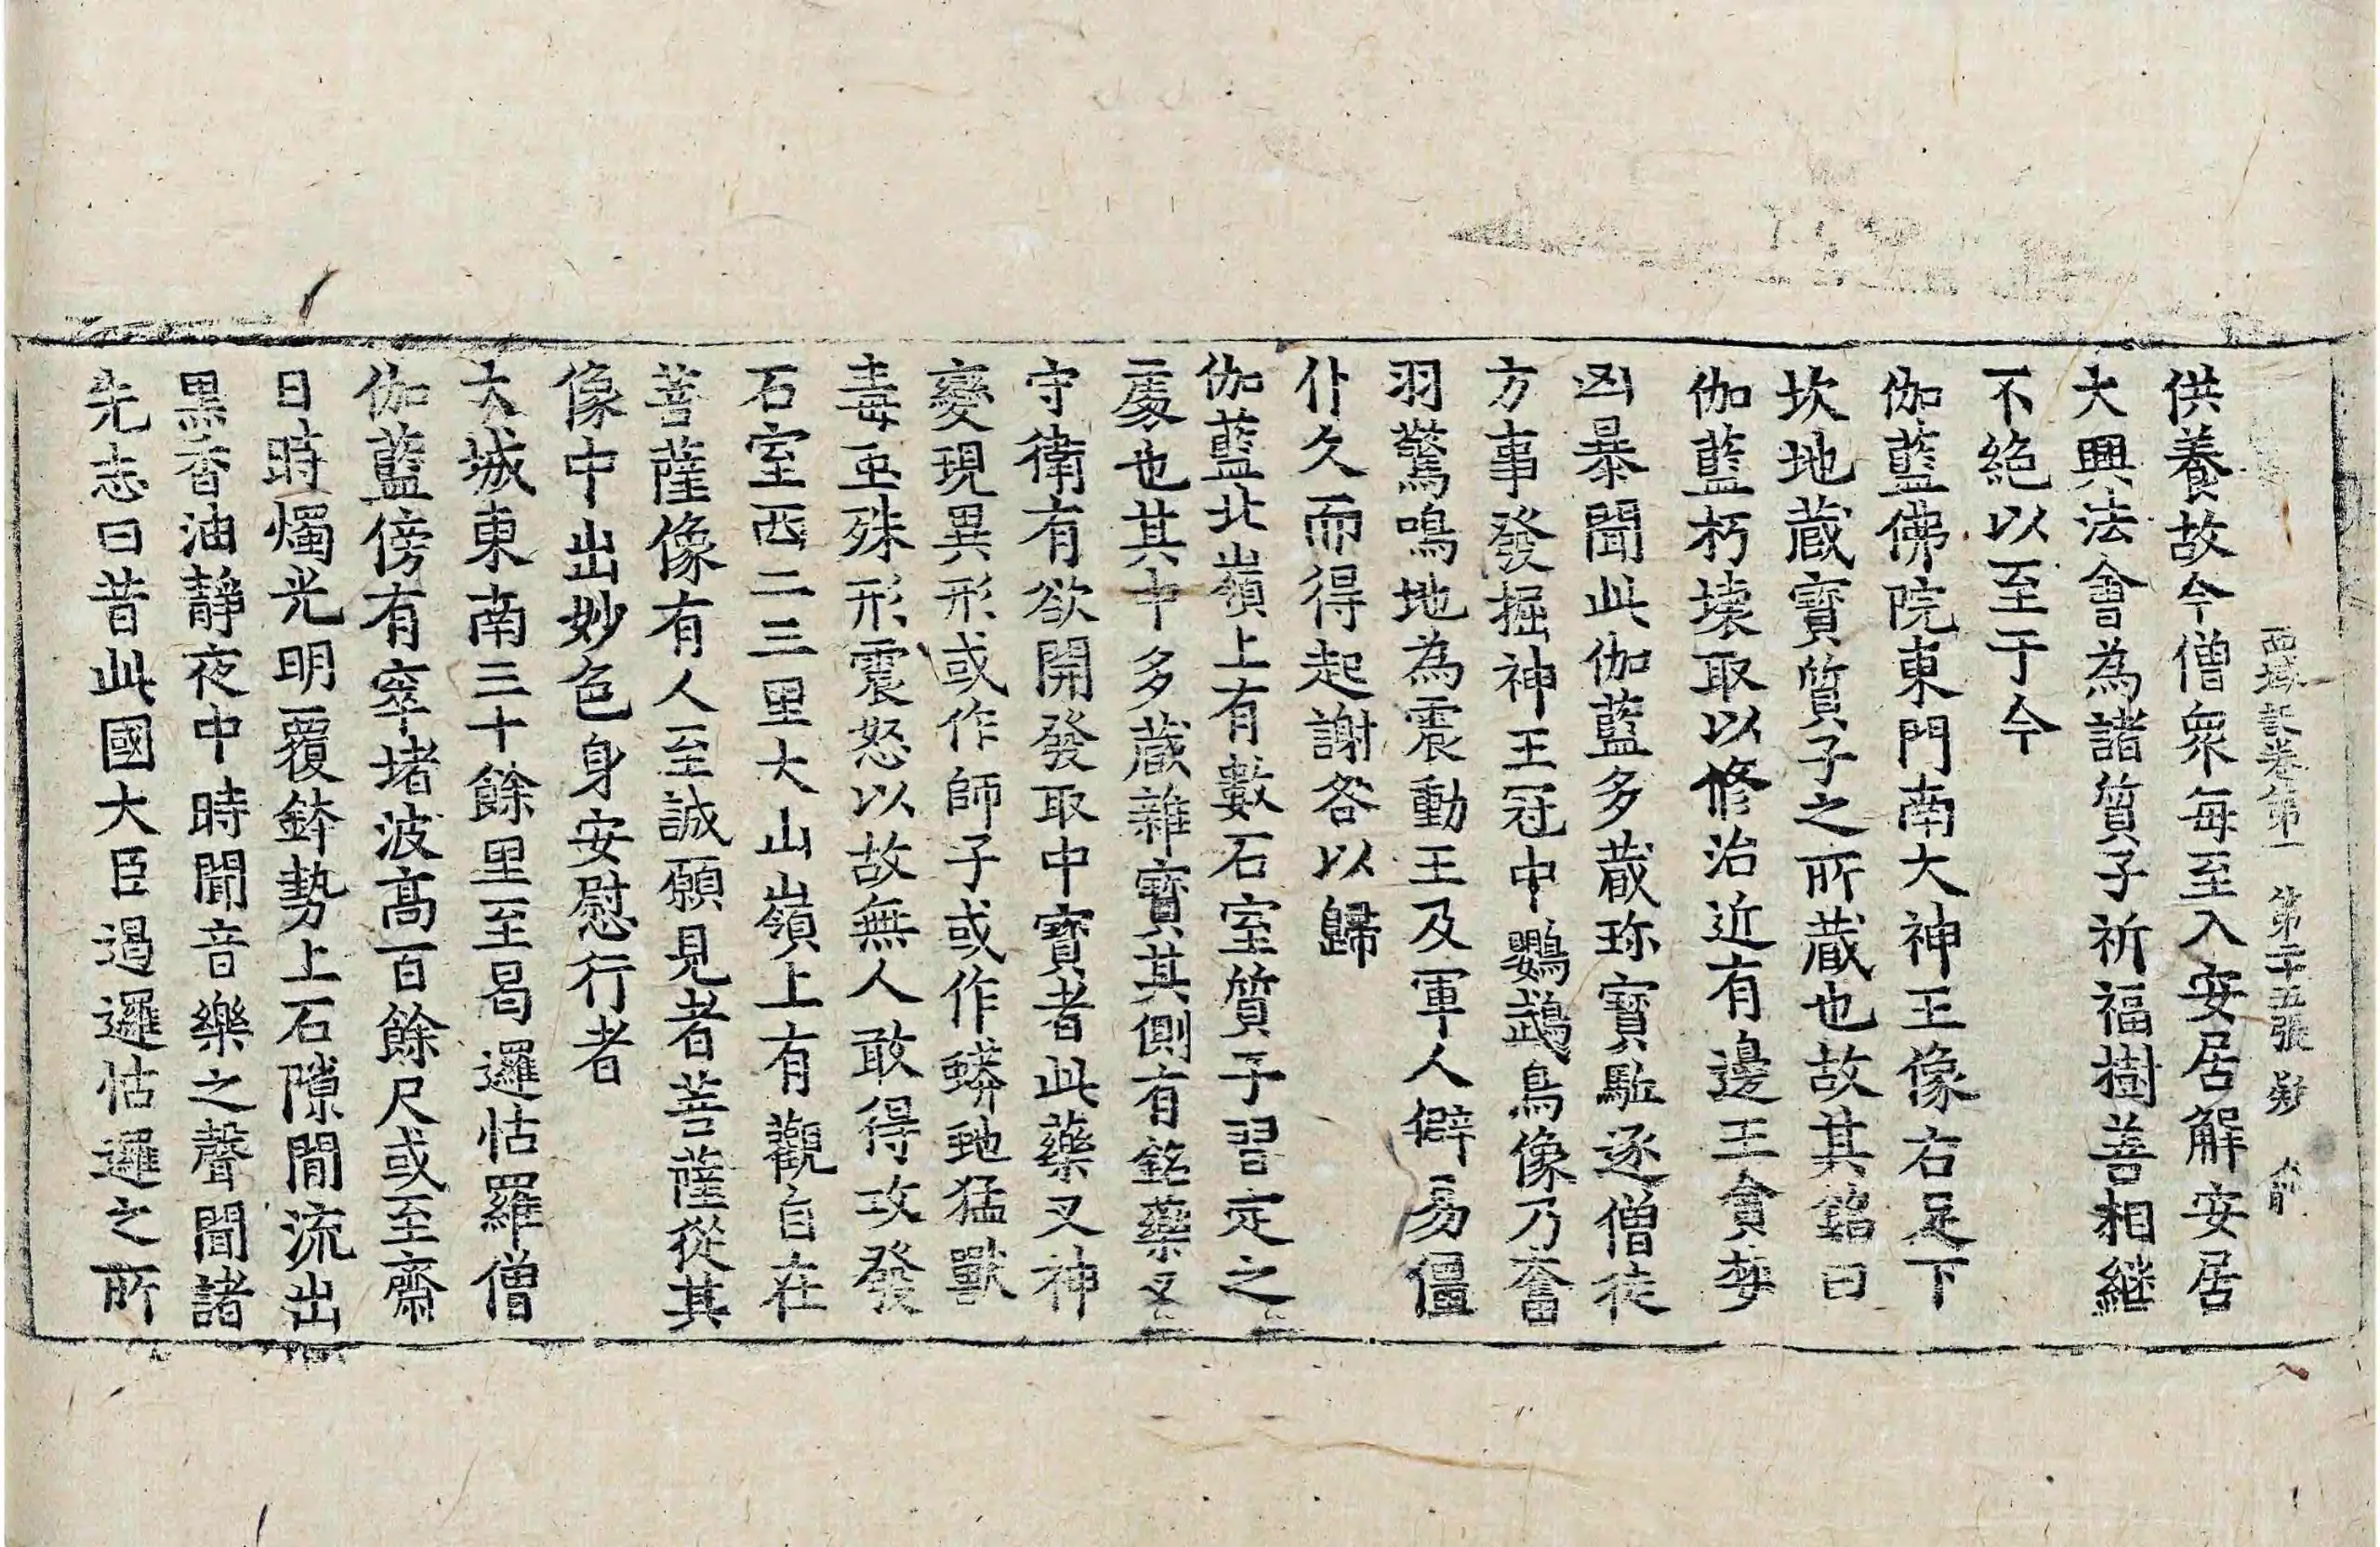 西域記卷第一 第二十五張 疑
供養故今僧衆每至入安居解安居
大興法會為諸質子祈福樹善相継
不絕以至于今
伽藍佛院東門南大神王像右足下
坎地蔵寶質子之所蔵也故其銘曰
伽藍朽壞取以修治近有邊王貪婪
凶暴聞此伽藍多蔵珎寶駈逐僧徒
方事發掘神王冠中鸚鵡鳥像乃奮
羽驚鳴地為震動王及軍人僻易僵
仆久而得起謝咎以歸
伽藍北嶺上有數石室質子習定之
處也其中多蔵雜寶其側有銘藥叉
守衛有欲開發取中寶者此藥叉神
變現異形或作師子或作蟒虵猛獸
毒虫殊形震怒以故無人敢得攻發
石室西二三里大山嶺上有觀自在
菩薩像有人至誠願見者菩薩從其
像中出妙色身安慰行者
大城東南三十餘里至曷邏怙羅僧
伽藍傍有窣堵波高百餘尺或至齋
日時燭光明覆鉢勢上石隙閒流出
黒香油靜夜中時聞音樂之聲聞諸
先志曰昔此國大臣遏邏怙邏之所